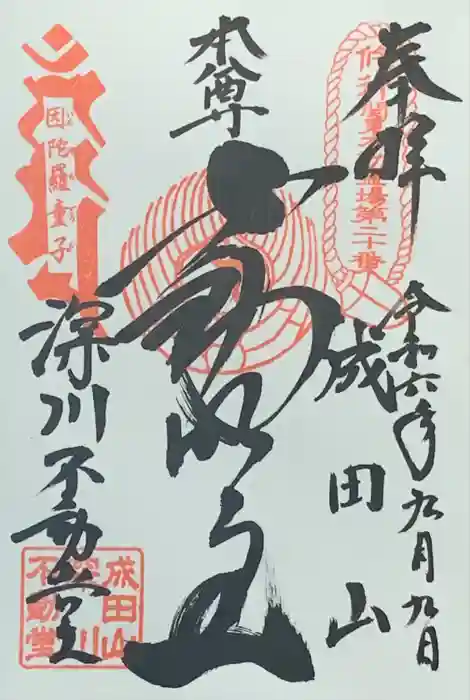 奉拝
令和六年九月九日
成田山
本尊
不動明王
深川不動堂
因陀羅童子
成田山
深川
不動堂
場第二十番